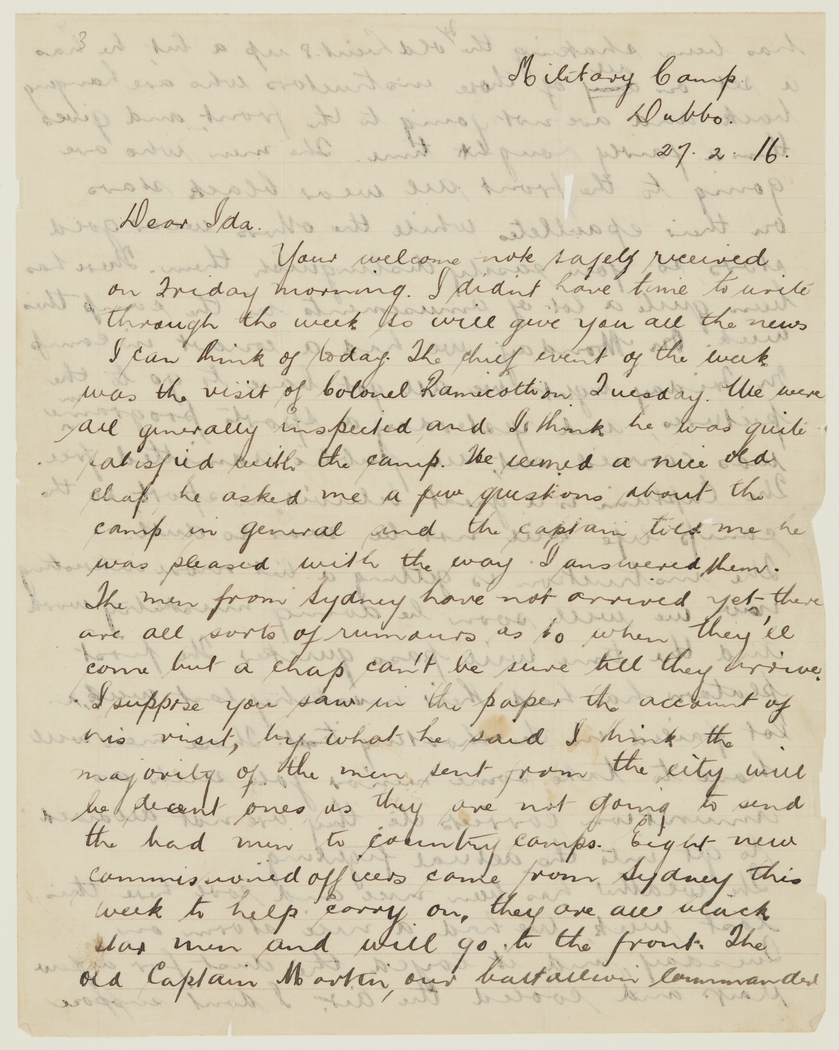 3
Military Camp
Dubbo.
27. 2. 16.
Dear Ida.
Your welcome note safely received
on Friday morning. I didn't have time to write
through the week so will give you all the news
I can think of today. The chief event of the week
was the visit of Colonel Ramicotti on Tuesday. We were
all generally inspected and I think he was quite
satisfied with the camp. He seemed a nice old
chap he asked me a few questions about the
camp in general and the captain told me he
was pleased with the way I answered them.
The men from Sydney have not arrived yet, there
are all sorts of rumours as to when they'll
come but a chap can't be sure till they arrive.
I suppose you saw in the paper the account of
his visit, by what he said I think the
majority of the men sent from the city will
be decent ones as they are not going to send
the bad men to country camps. Eight new
commissioned officers came from Sydney this
week to help carry on, they are all black
star men and will go to the front. The
old Captain Martin, our battallion commander